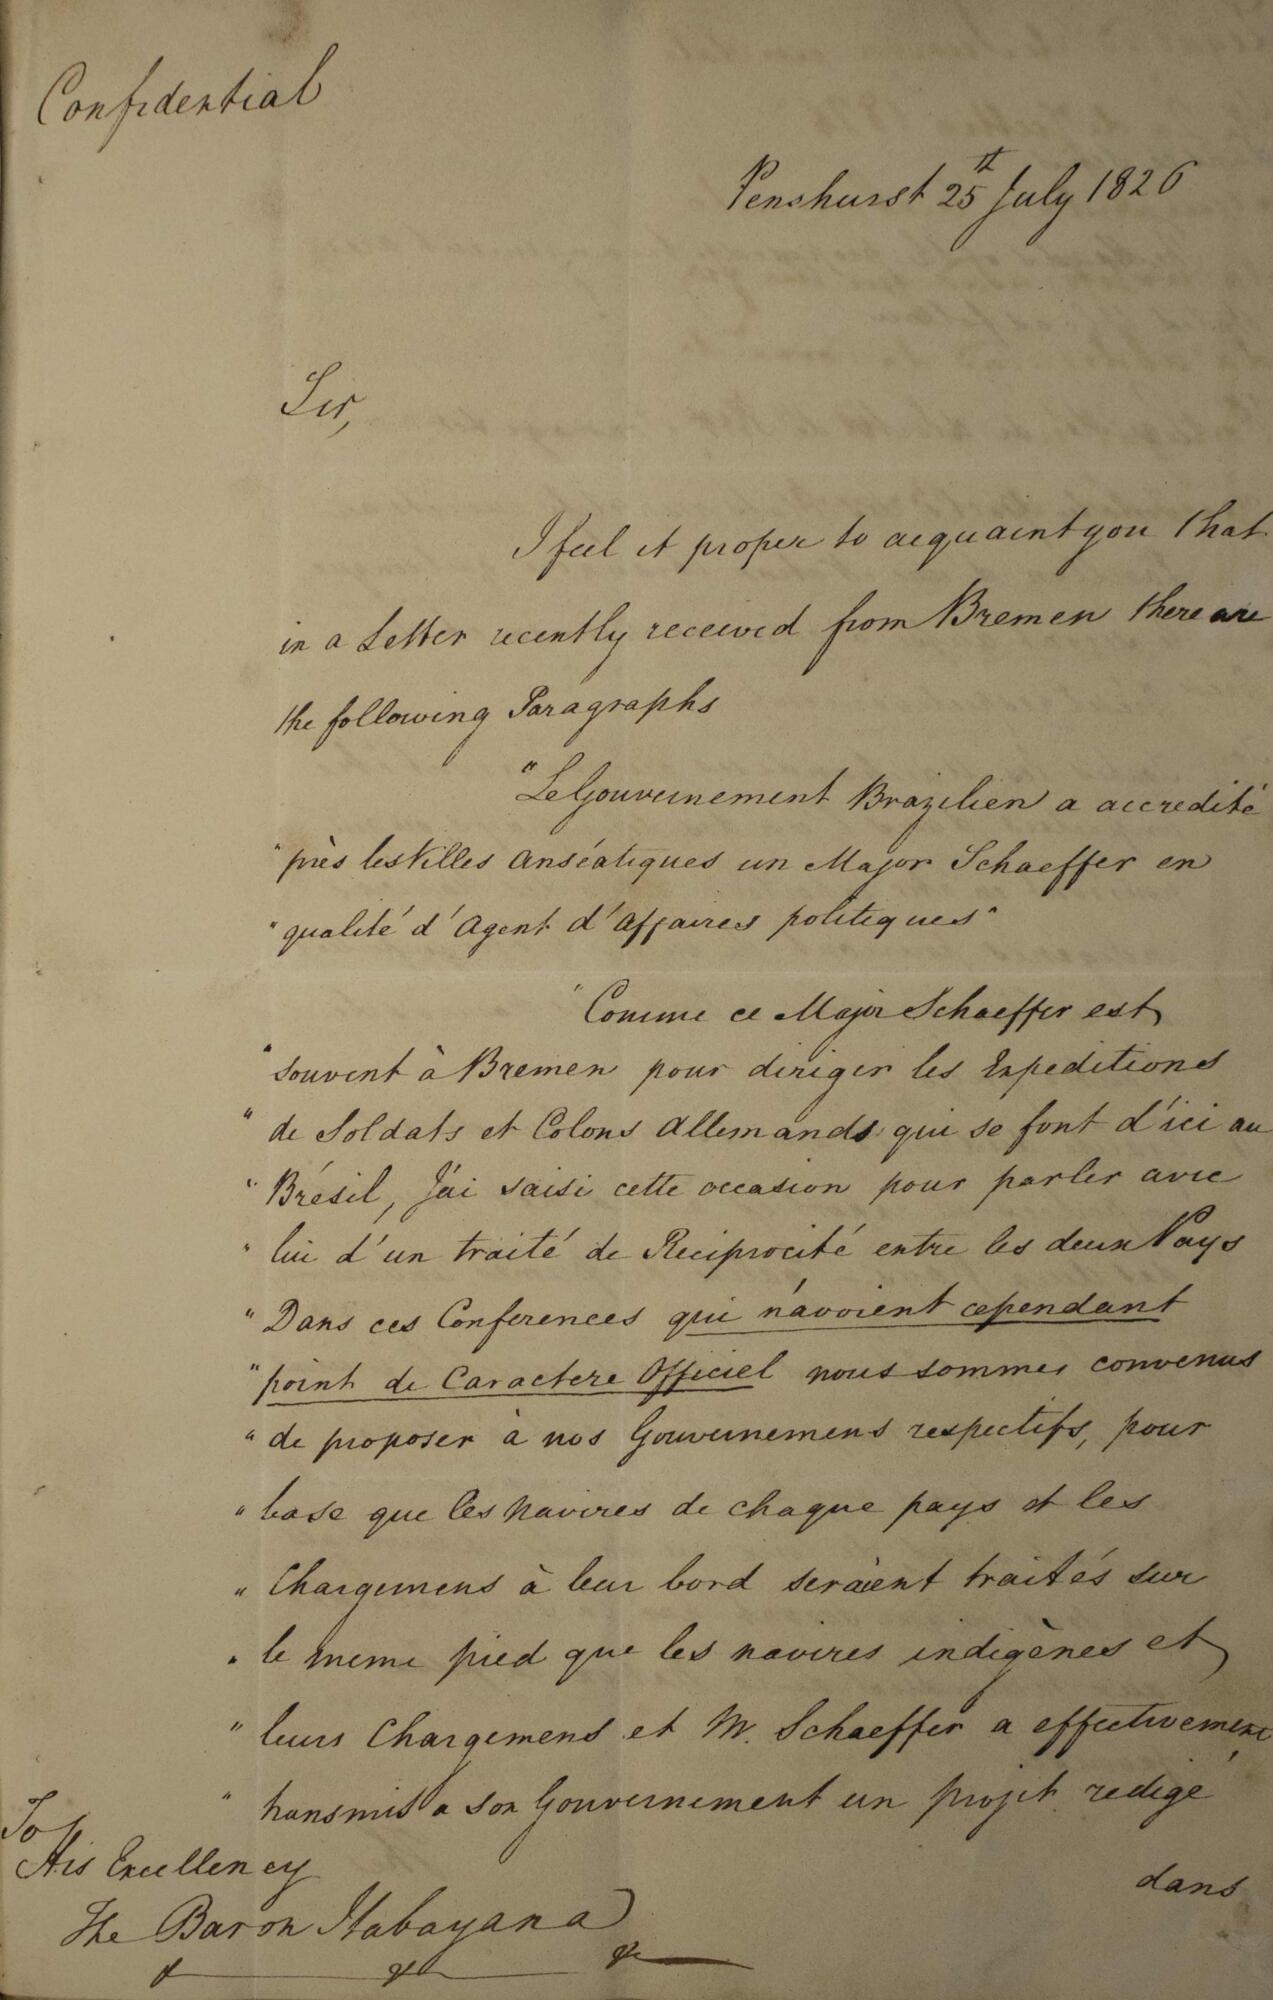 Confidential
Penshurst 25th July 1826
Sir,
I feel it proper to acquaint you that
in a Letter recently received from Bremen there are
the following Paragraphs
"Le Gouvernement Brazilien a accredité
"près les Villes Anséatiques un Major Schaeffer en
"qualité d'Agent d'Affaires politiques"
"Comme ce Major Schaeffer est
"souvent à Bremen pour diriger les Expeditions
"de Soldats et Colons Allemands qui se font d'ici au
"Brésil, J'ai saisi cette occasion pour parler avec
"lui d'un traité de Reciprocité entre les deux Pays
"Dans ces Conferences qui n'avoient cependant
"point de Caractere Officiel nous sommes convenus
"de proposer à nos Gouvernemens respectifs, pour
"base que les Navires de chaque pays et les
"Chargemens à leur bord seraient traités sur
"le meme pied que les navires indigènes et
"leurs Chargemens et M. Schaeffer a effectivement
"transmis a son Gouvernement un projet redigé
dans
To
His Excellency
The Baron Itabayana
&c &c &c